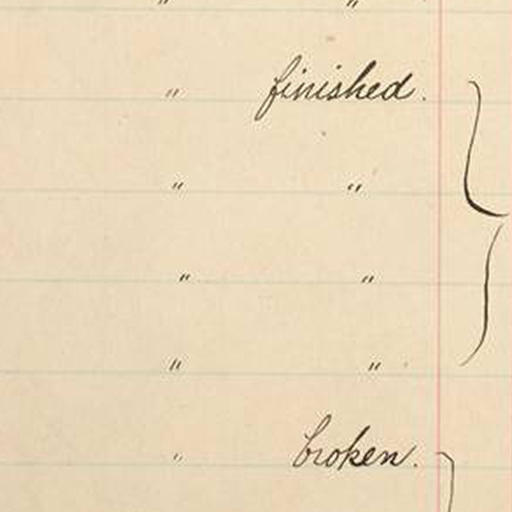 " "
" finished.
" "
" "
" "
" broken.